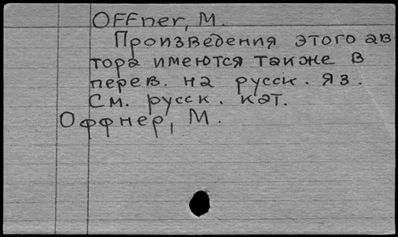 Offner, M.
Произведения этого ав
тора имеются также в
перев. на русск. яз.
См. русск. кат.
Оффнер, М.